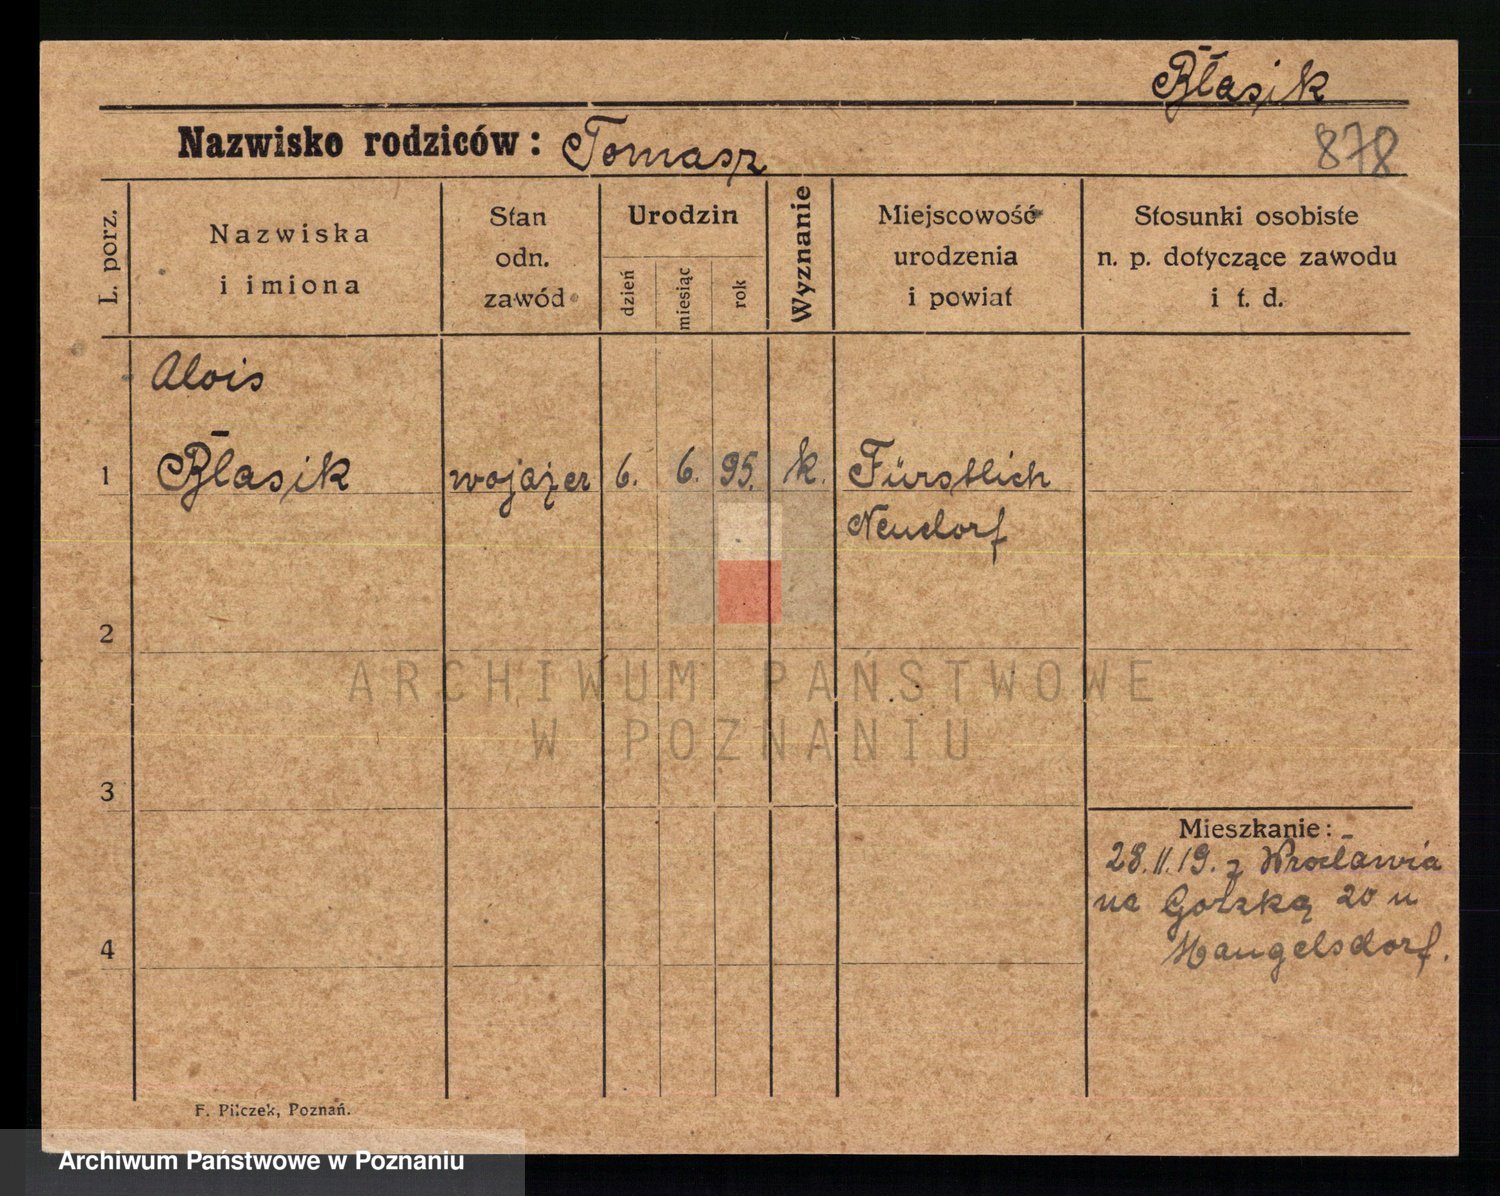 Błasik
Nazwisko rodziców: Tomasz
878
L. porz.
Nazwiska
i imiona
Stan
odn.
zawód
Urodzin
dzień
miesiąc
rok
Wyznanie
Miejscowość
urodzenia
i powiat
Stosunki osobiste
n. p. dotyczące zawodu
i t. d.
Alois
1 Błasik wojażer 6. 6. 95. k. Fürstlich
Neudorf
2
3
4
Mieszkanie:
28.II.19. z Wrocławia
na Gołzką 20 u
Mangelsdorf.
F. Pilczek, Poznań.
ARCHIWUM PAŃSTWOWE
W POZNANIU
Archiwum Państwowe w Poznaniu